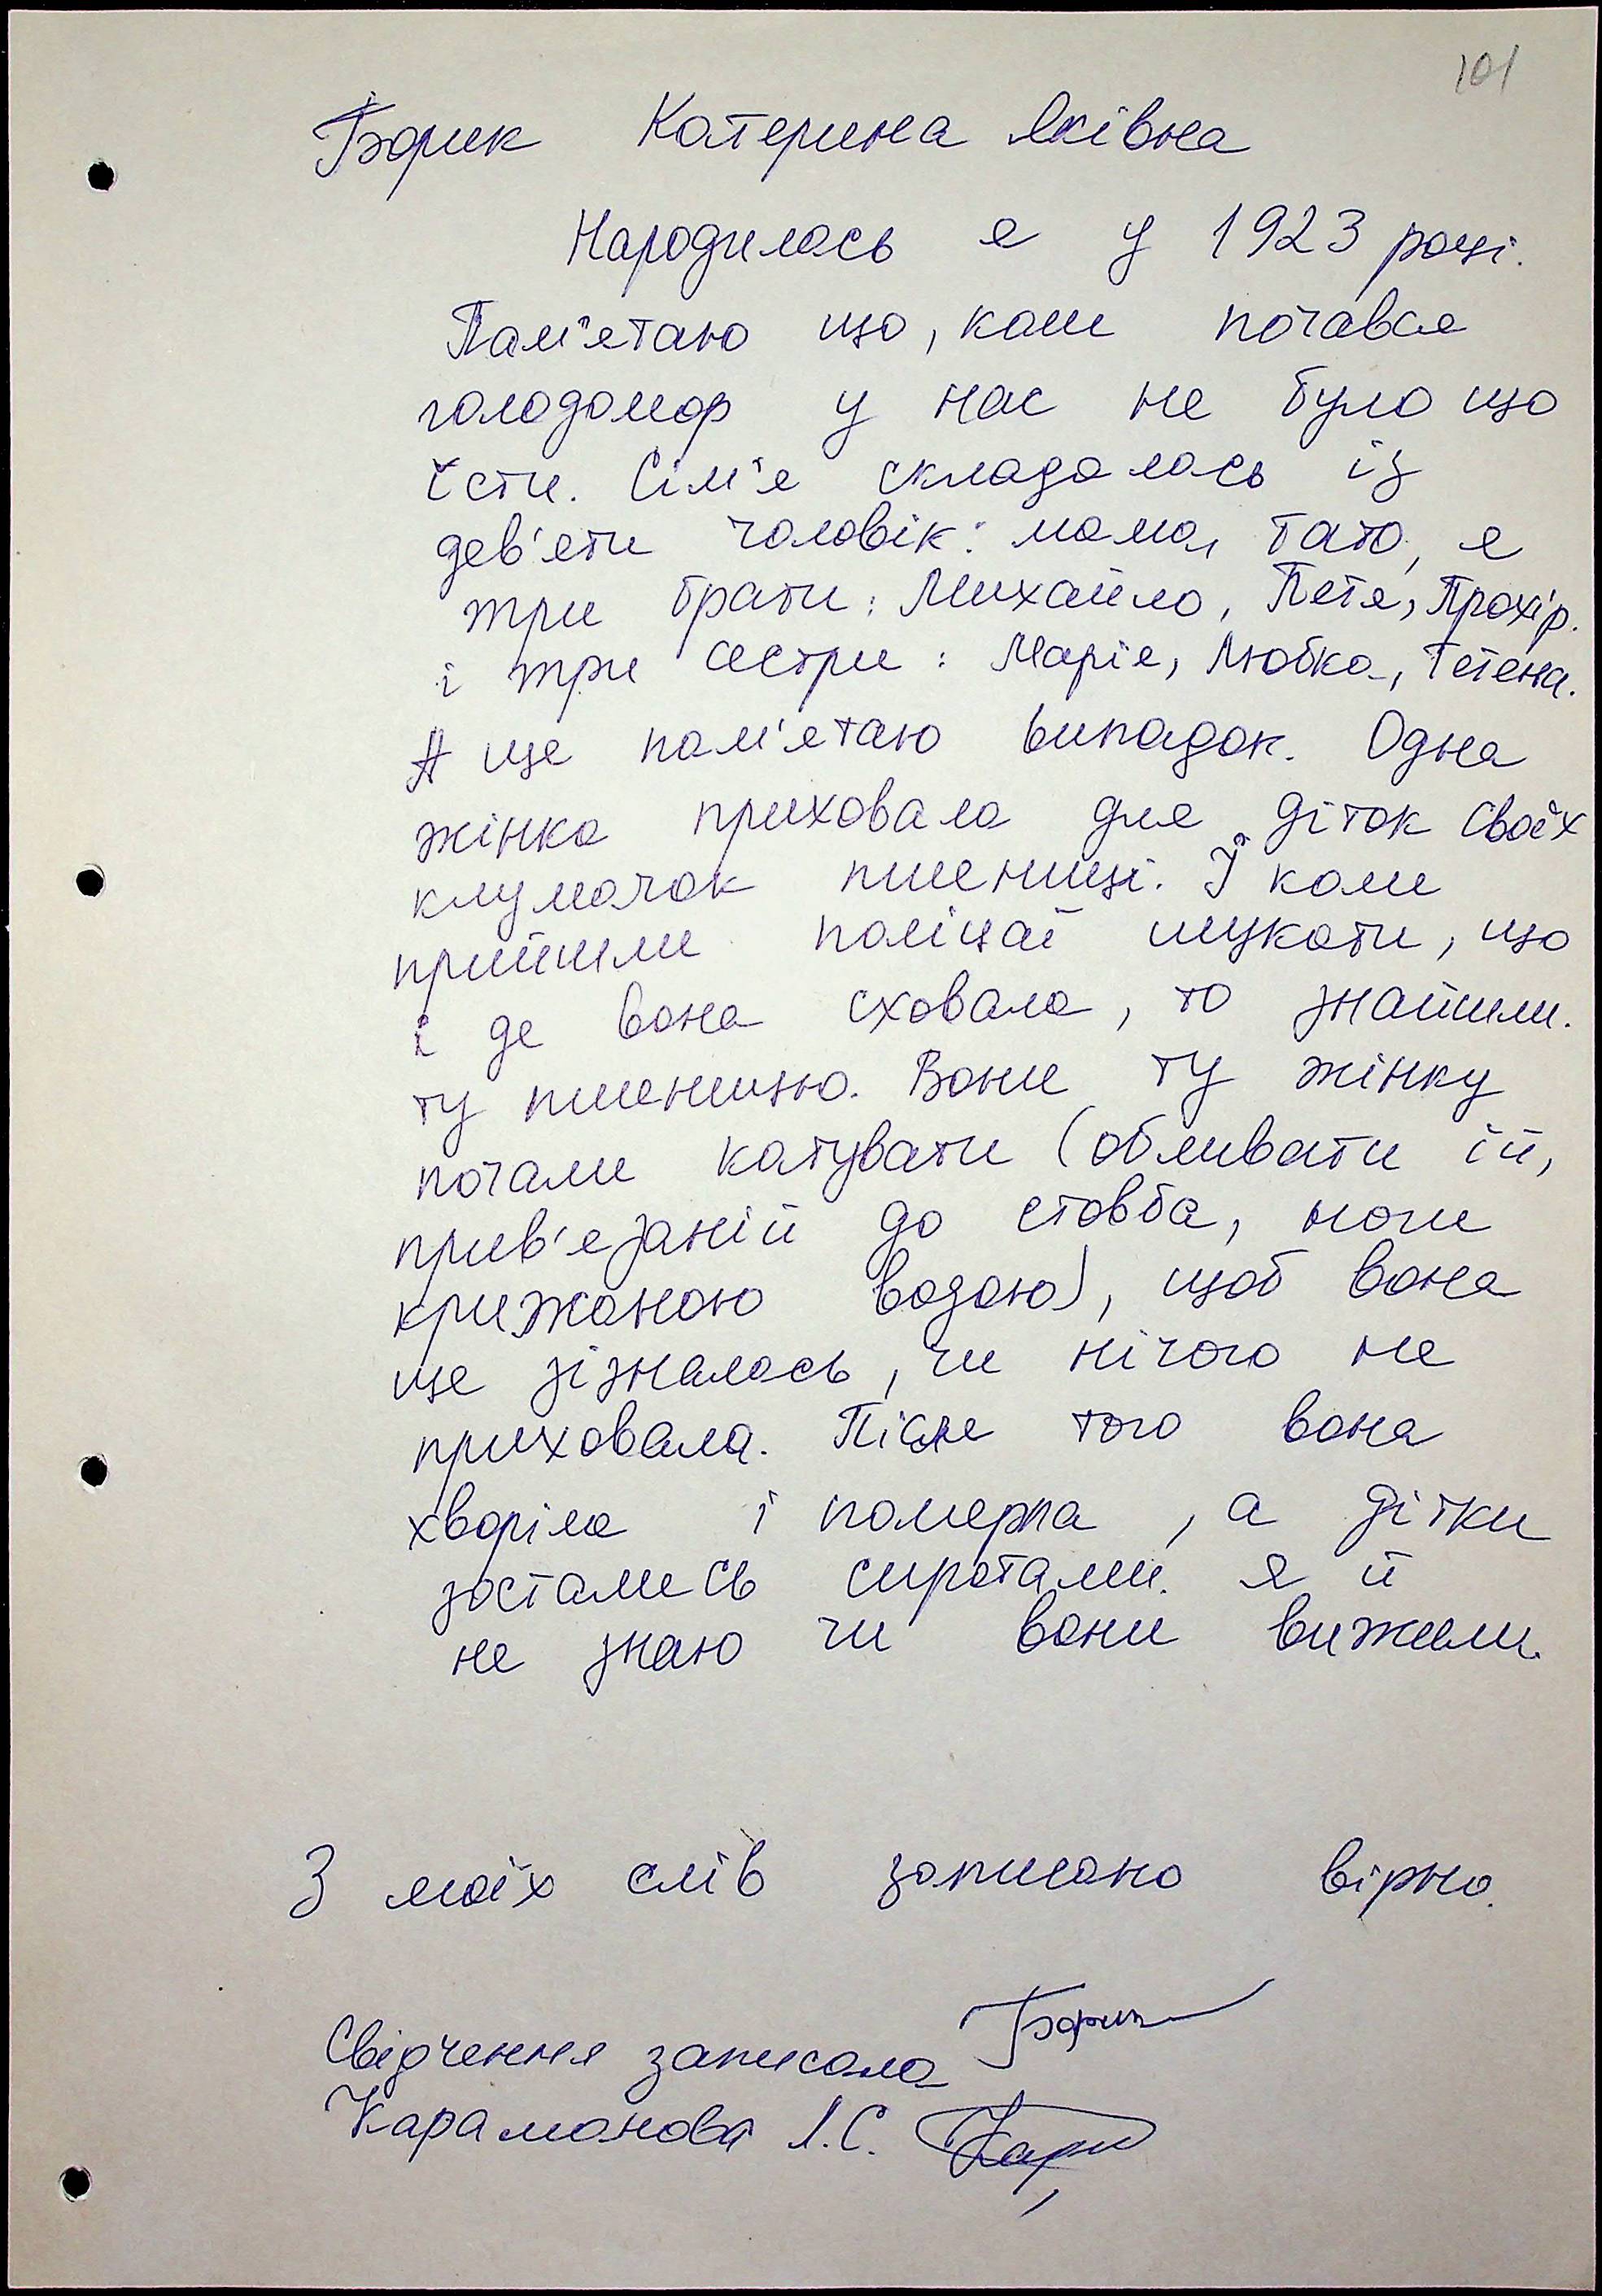 101
Борик Катерина Яківна
Народилась я у 1923 році.
Пам'ятаю що, коли почався
голодомор у нас не було що
їсти. Сім'я складалась із
дев'яти чоловік: мама, тато, я
три брати: Михайло, Петя, Прохір.
і три сестри: Марія, Любка, Тетяна.
А ще пам'ятаю випадок. Одна
жінка приховала для діток своїх
клумочок пшениці. І коли
прийшли поліцаї шукати, що
і де вона сховала, то знайшли.
ту пшеницю. Вони ту жінку
почали катувати (обливати їй,
прив'язаній до стовба, ноги
крижаною водою), щоб вона
ще зізналась, чи нічого не
приховала. Після того вона
хворіла і померла, а дітки
зостались сиротами. Я й
не знаю чи вони вижили.
З моїх слів записано вірно.
Борик
Свідчення записала
Карамонова Л.С. Кара